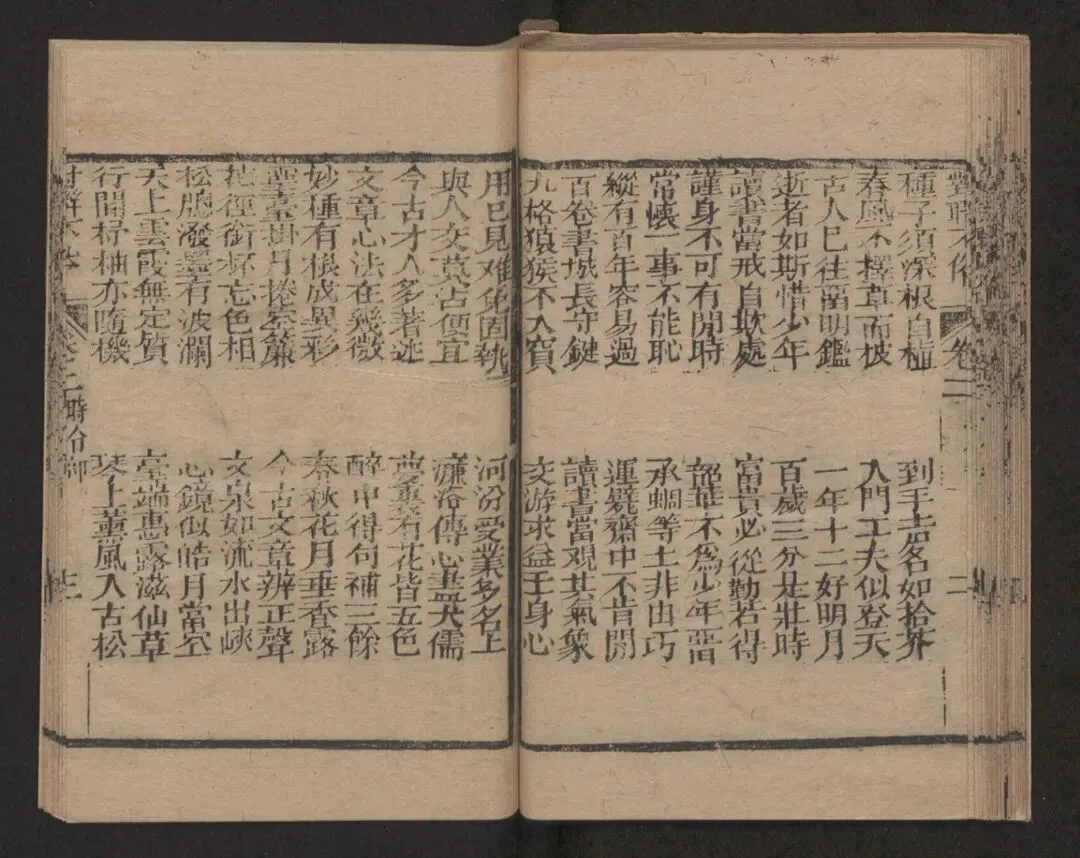 對聯不俗 卷二 二
種子須深根自植 到手 名如拾芥
春風不擇草而被 入門工夫似登天
古人巳往留明鑑 一年十二好明月
逝者如斯惜少年 百歲三分是壯時
讀書當戒自欺處 富貴必從勤若得
謹身不可有閒時 韶華不為少年畱
常懷一事不能恥 承蜩等土非由巧
縱有百年容易過 運甓齋中不肯閒
百卷書城長守鍵 讀書當观其氣象
九格猿猴不入 交游求益王身心
用巳見难免固執 河汾受業多名士
與人交莫占便宜 濂洛傳心盡大儒
今古才人多著述 夢筆 花皆五色
文章心法在幾微 醉中得句補三餘
妙種有根成異彩 春秋花月垂香露
臺掛月捲窓簾 今古文章辨正聲
花徑銜杯忘色相 文泉如流水出峽
松牕潑墨有波瀾 心鏡似皓月當空
天上雲霞無定質 臺端惠露滋仙草
行間杼柚亦随機 琴上薰風入古松
卷二 時令部